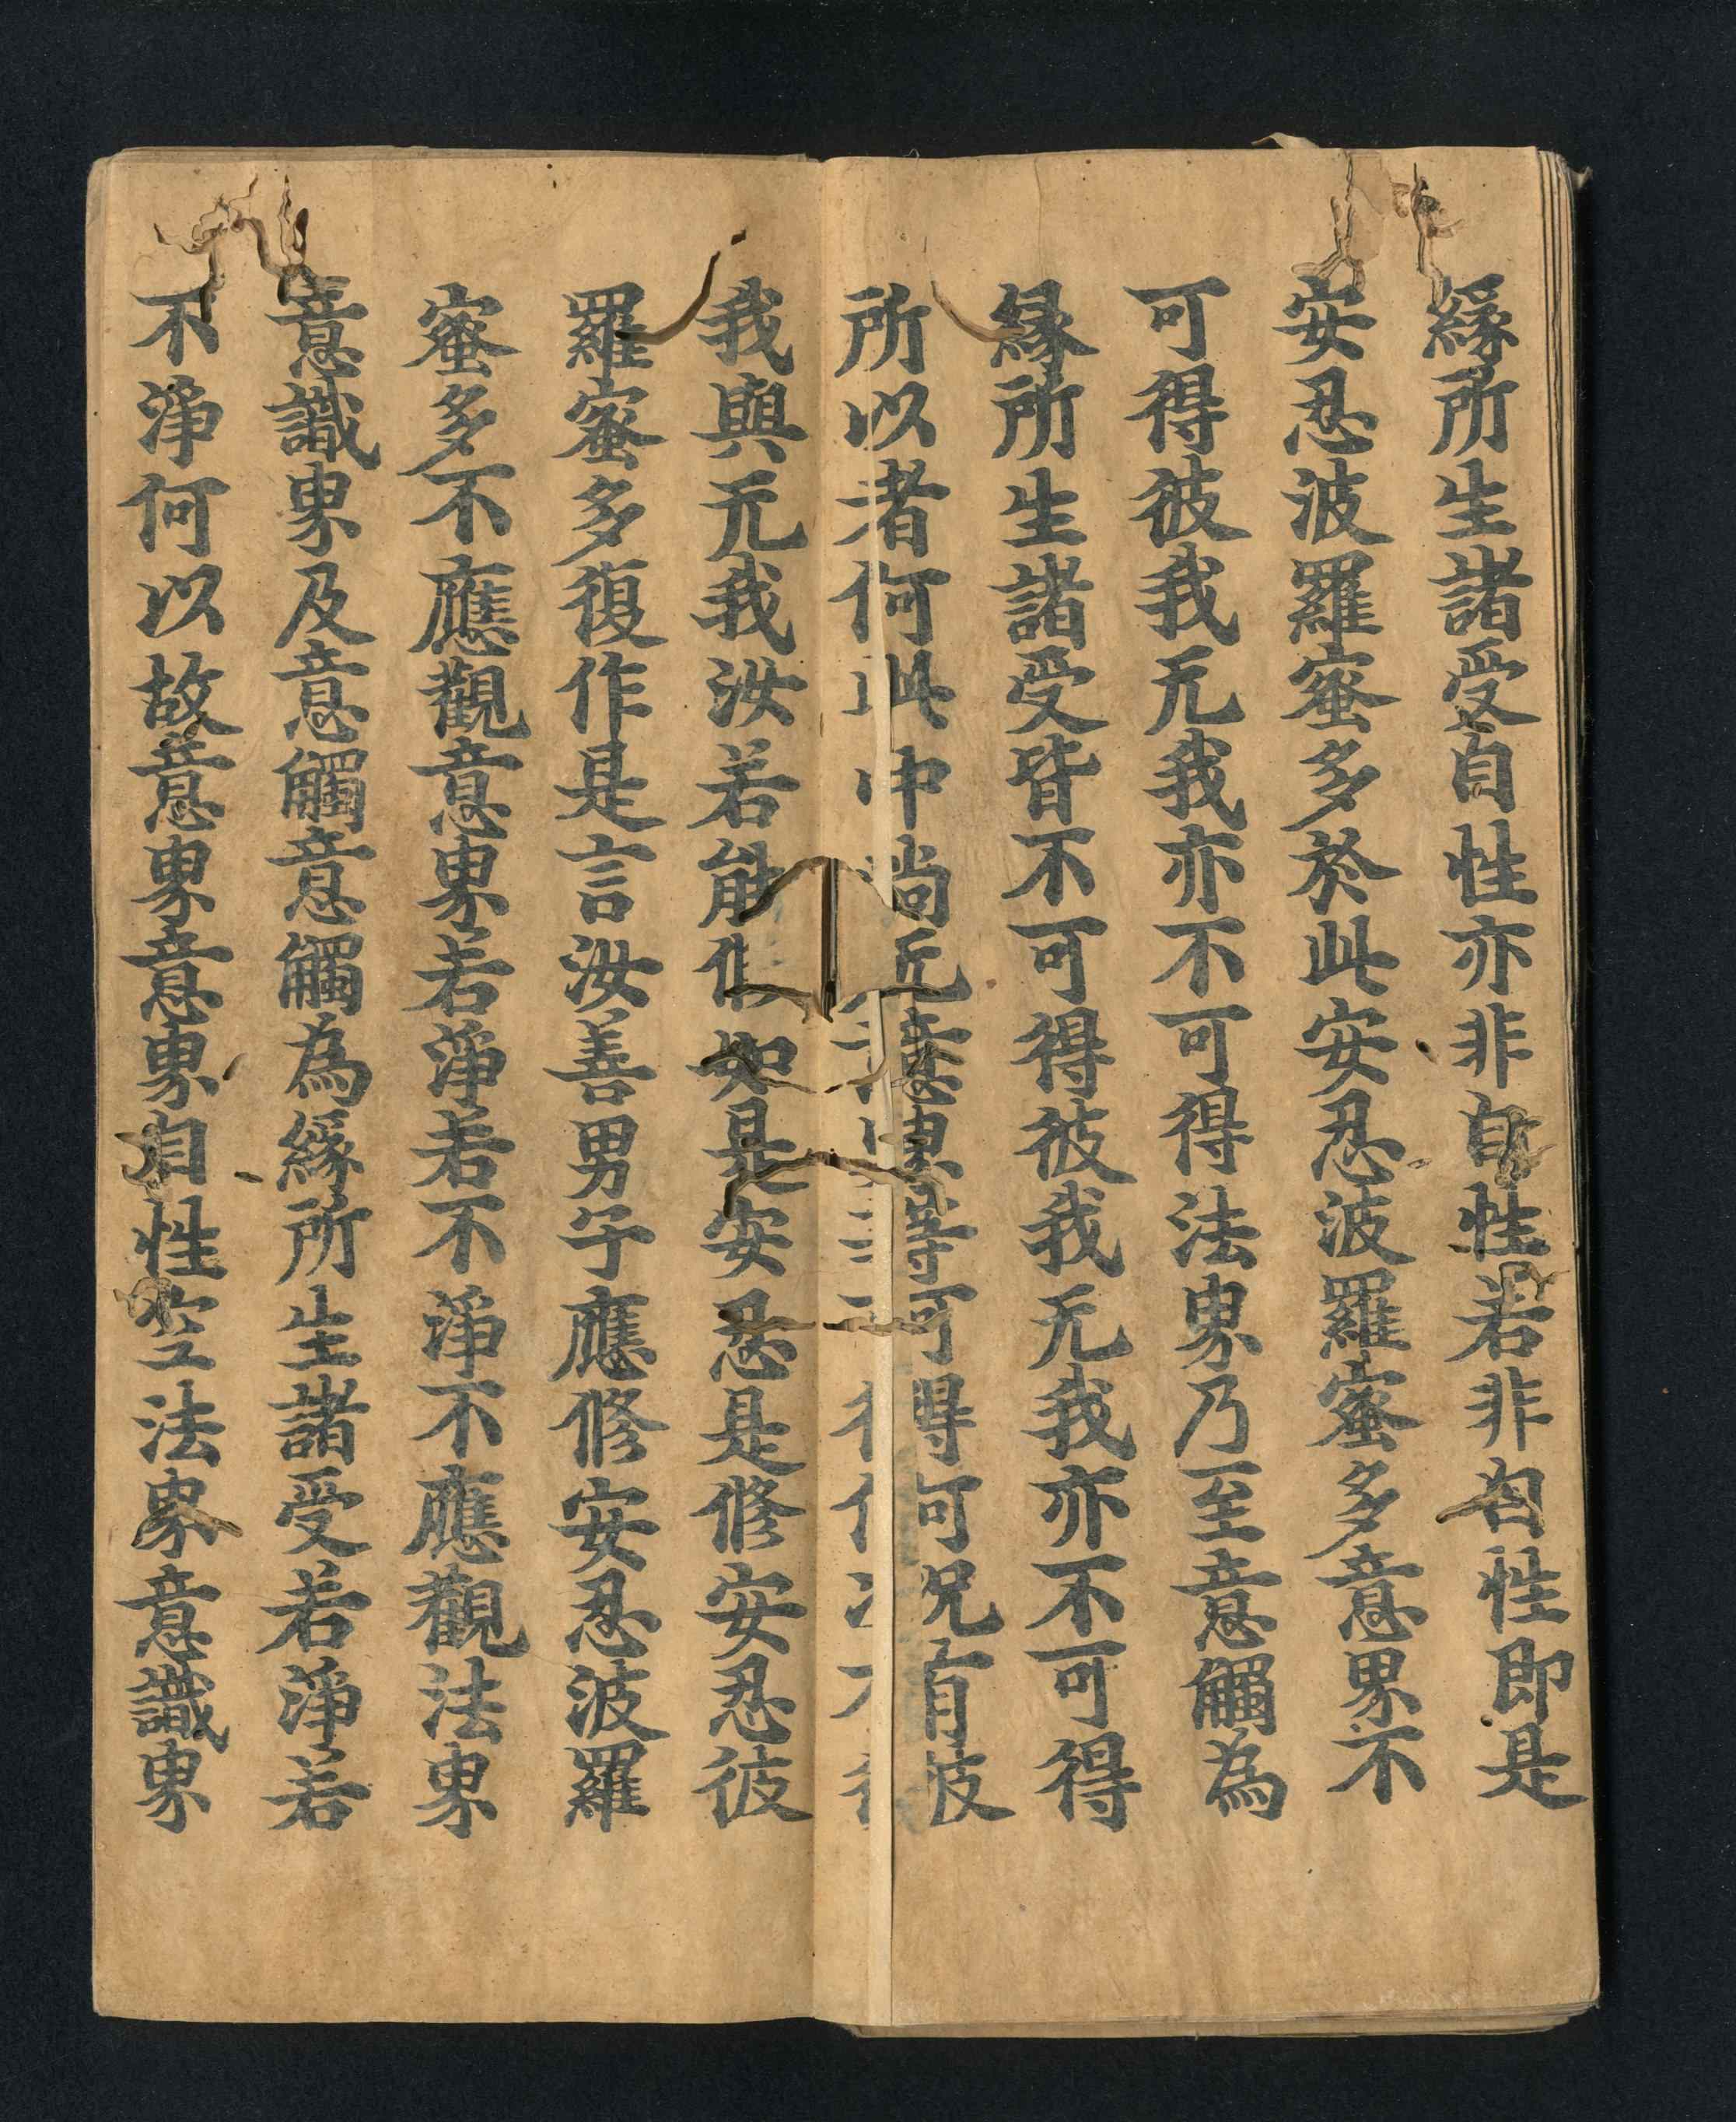 緣所生諸受自性亦非自性若非自性即是
安忍波羅蜜多於此安忍波羅蜜多意界不
可得彼我无我亦不可得法界乃至意觸為
緣所生諸受皆不可得彼我无我亦不可得
所以者何此中尚无意界等可得何况有彼
我與无我汝若能修如是安忍是修安忍彼
羅蜜多復作是言汝善男子應修安忍波羅
蜜多不應觀意界若淨若不淨不應觀法界
意識界及意觸意觸為緣所生諸受若淨若
不淨何以故意界意界自性空法界意識界